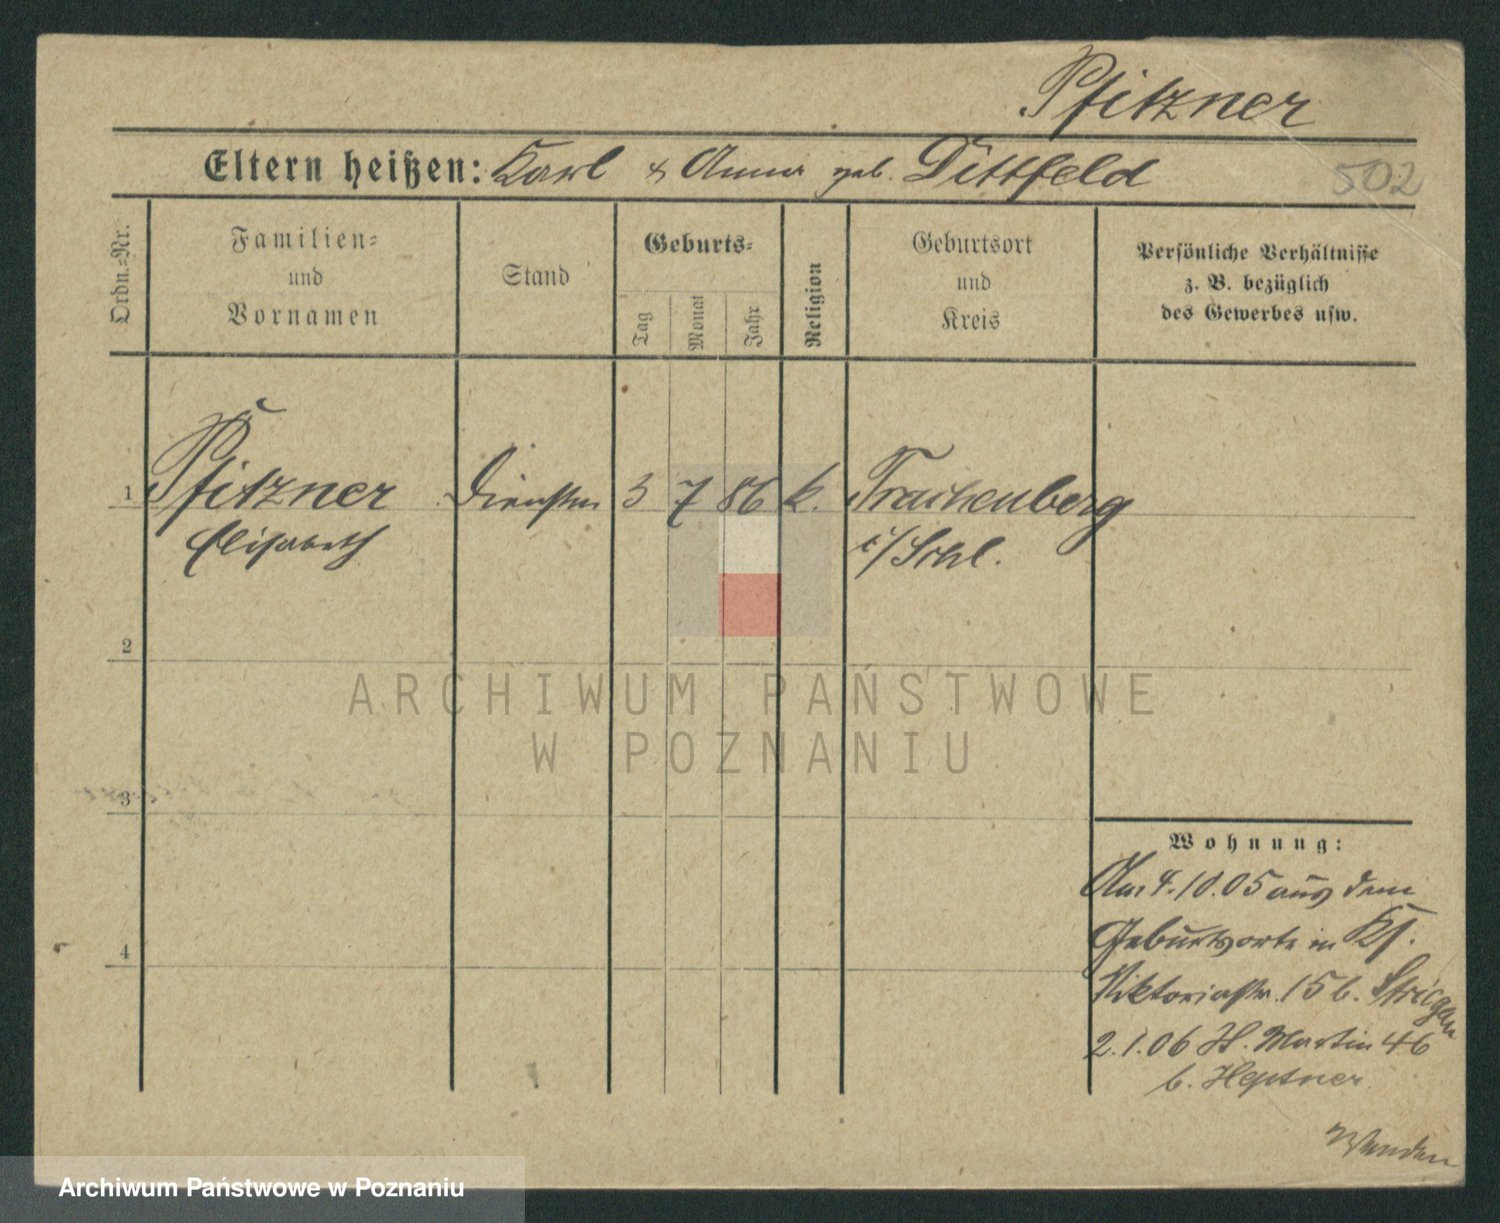 Pfitzner
Eltern heißen: Karl & Anna geb. Dittfeld
502
Ordn.-Nr.
Familien-
und
Vornamen
Stand
Geburts-
Tag
Monat
Jahr
Religion
Geburtsort
und
Kreis
Persönliche Verhältnisse
z. B. bezüglich
des Gewerbes usw.
1 Pfitzner 3 7 86 k. Trachenberg
Elisabeth i/Schl.
2
ARCHIWUM PAŃSTWOWE
W POZNANIU
3
4
Wohnung:
Am 4.10.05 aus dem
Geburtsorte in
Viktoriastr. 15 b. Striegan
2.1.06 St. Martin 46
b. Heptner
Wenden
Archiwum Państwowe w Poznaniu